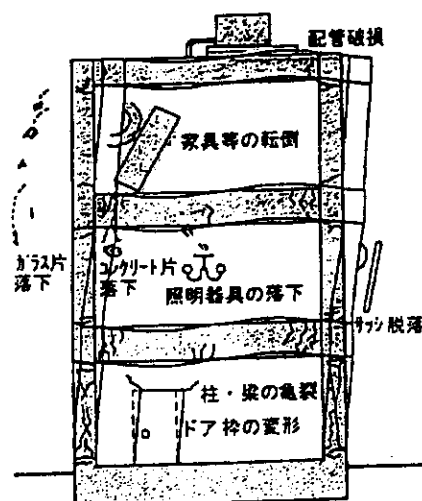 配管破損
家具等の転倒
ガラス片
落下
コンクリート片
落下
照明器具の落下
サッシ脱落
柱・梁の亀裂
ドア枠の変形